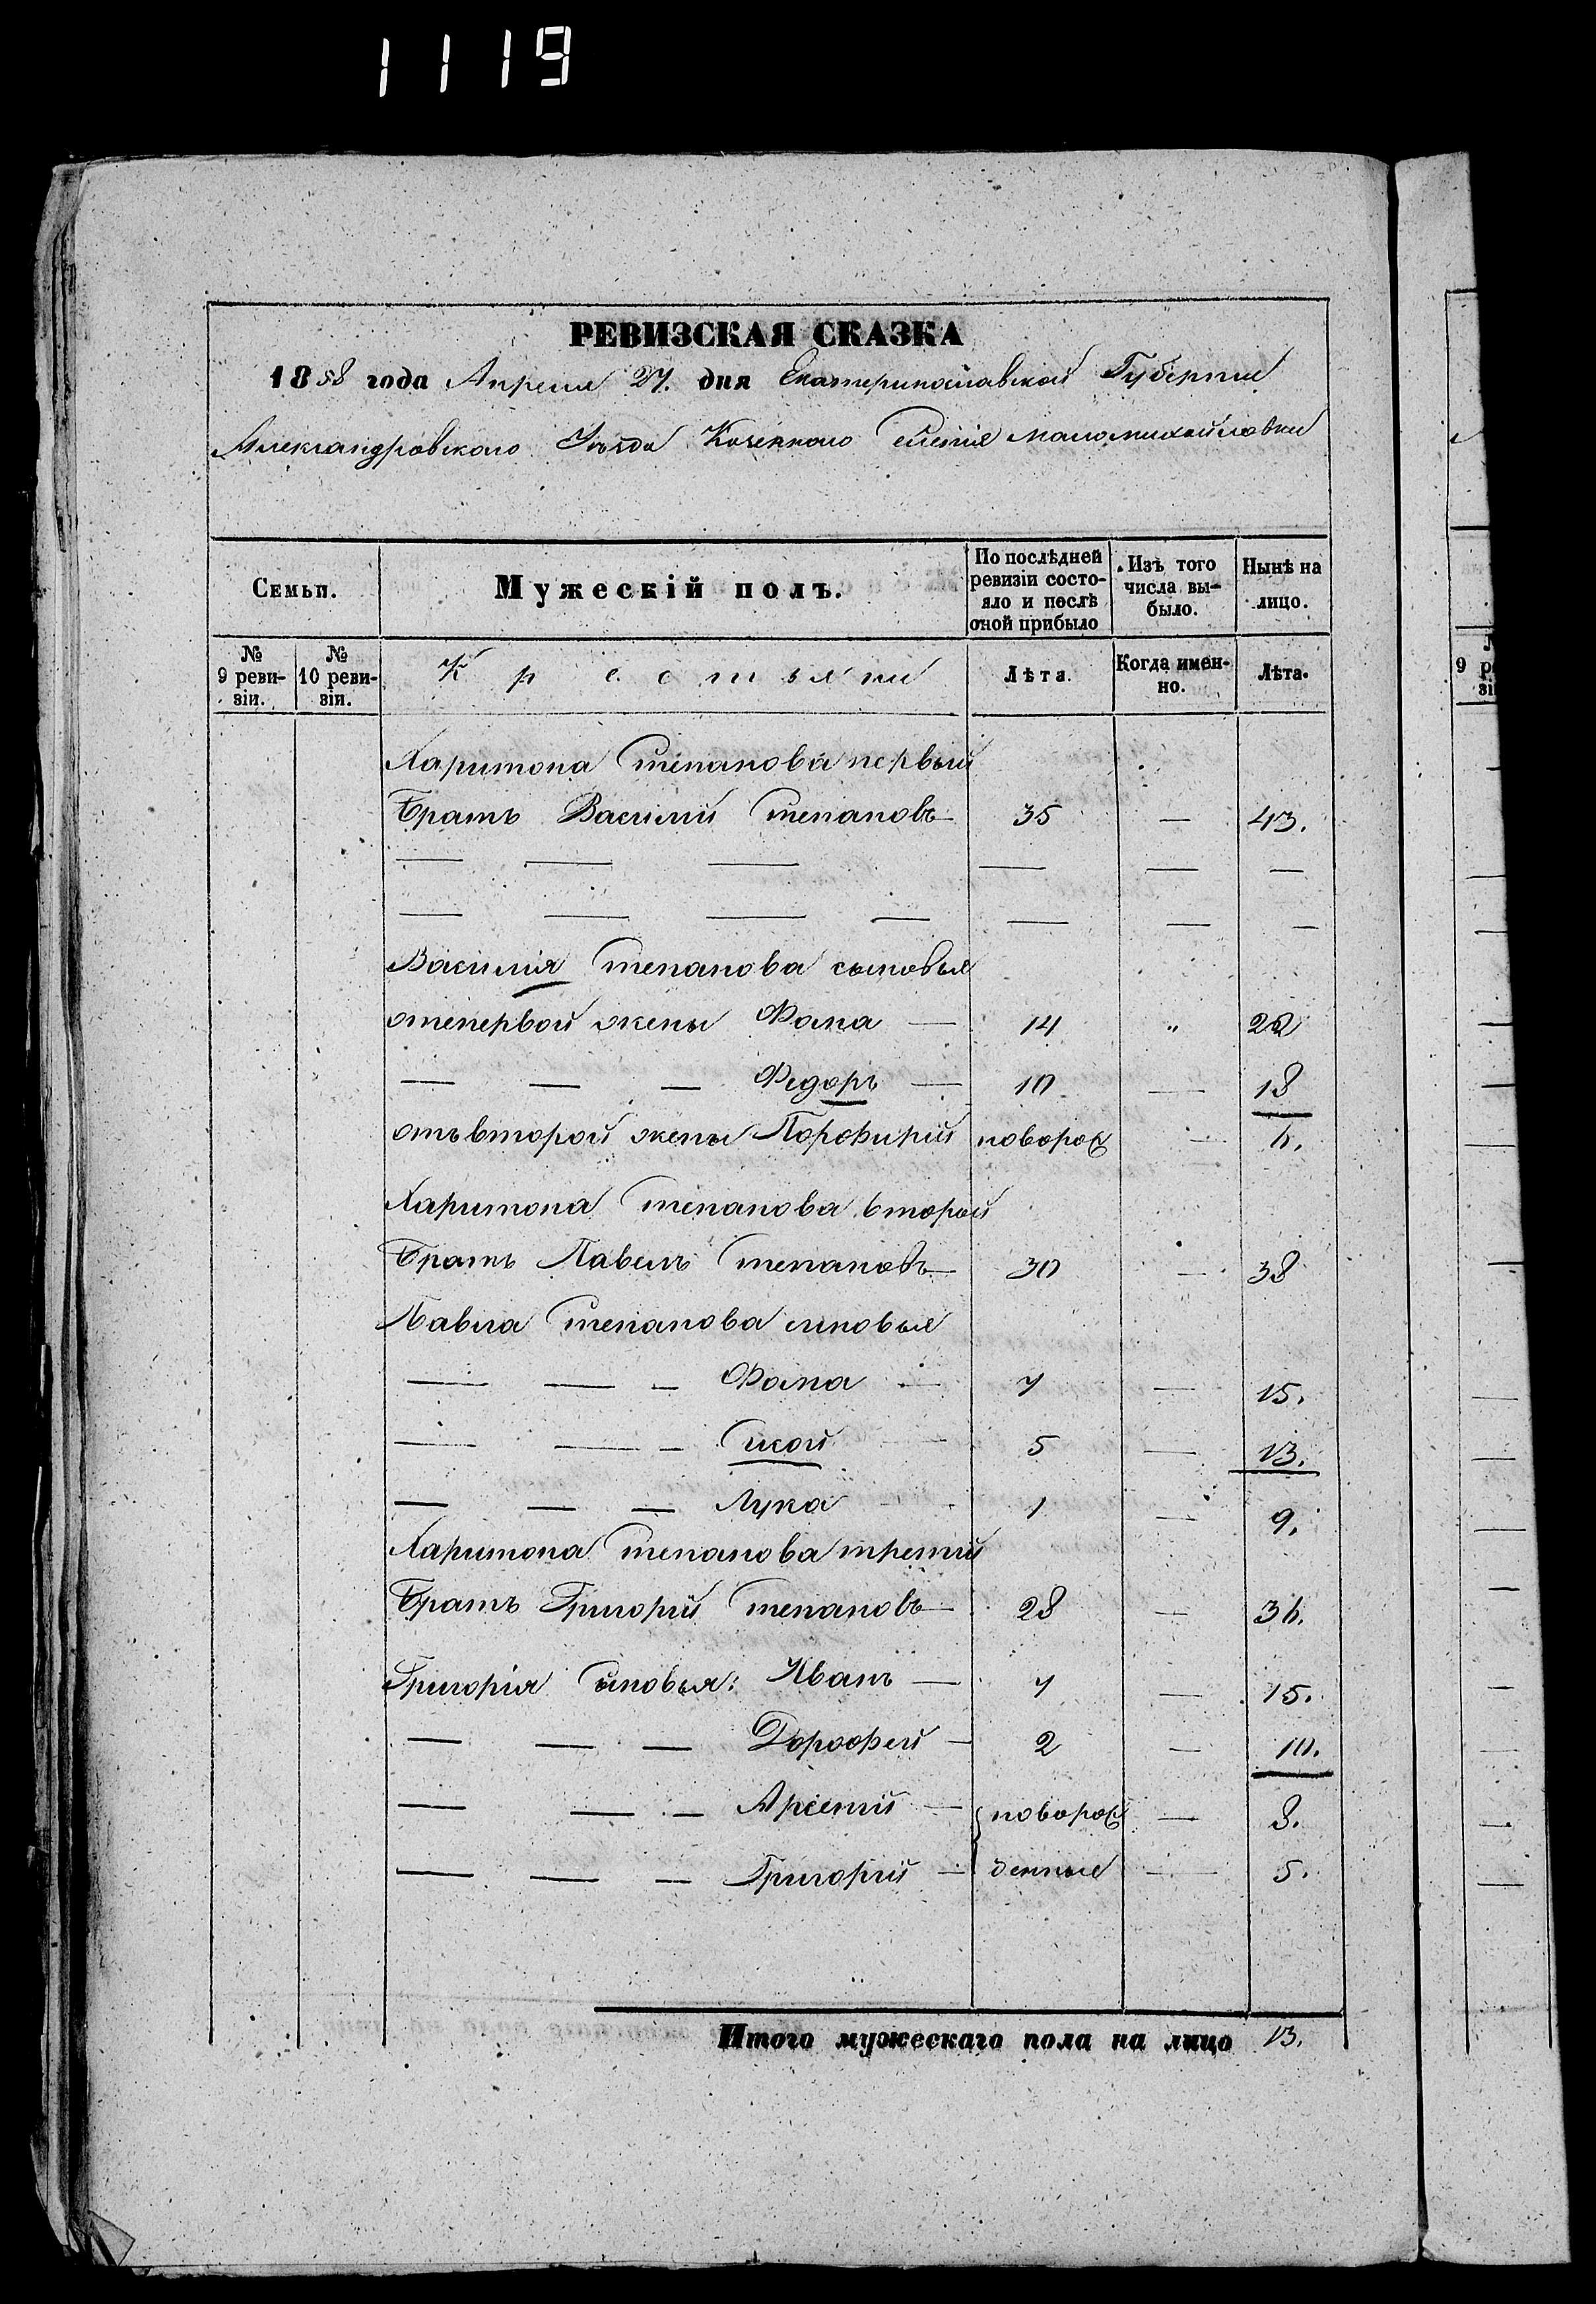 1119
РЕВИЗСКАЯ СКАЗКА
1858 года Апреля 27. дня Екатеринославской Губернии
Александровского Уѣзда Козенного селенія маломихайловки
Семьи.
Мужескій полъ.
По послѣдней ревизіи состояло и послѣ оной прибыло
Изъ того числа выбыло.
Нынѣ на лицо.
№ 9 ревизіи.
№ 10 ревизіи.
Крестьяни
Лѣта.
Когда именно.
Лѣта.
Харитона Степанова первый
Братъ Василий Степановъ — 35 — 43.
— — — — — —
— — — — — — —
Василия Степанова сыновья
отъпервой жены Фома — 14 " 22
— — — Федоръ — 10 — 18
отъвторой жены Порфирий новорож — 6.
Харитона Степанова второй
Братъ Павелъ Степановъ — 30 — 38
Павла Степанова сыновья
— — — Фома — 7 — 15.
— — — Сисой — 5 — 13.
— — — Лука 1 — 9.
Харитона Степанова третий
Братъ Григорий Степановъ — 28 — 36.
Григорія сыновья: Иванъ — 7 — 15.
— — — Дорофей — 2 — 10.
— — — Арсений — новорож — 8.
— — — Григорий — денные — 5.
Итого мужескаго пола на лицо 13.
№
9 ре
зі